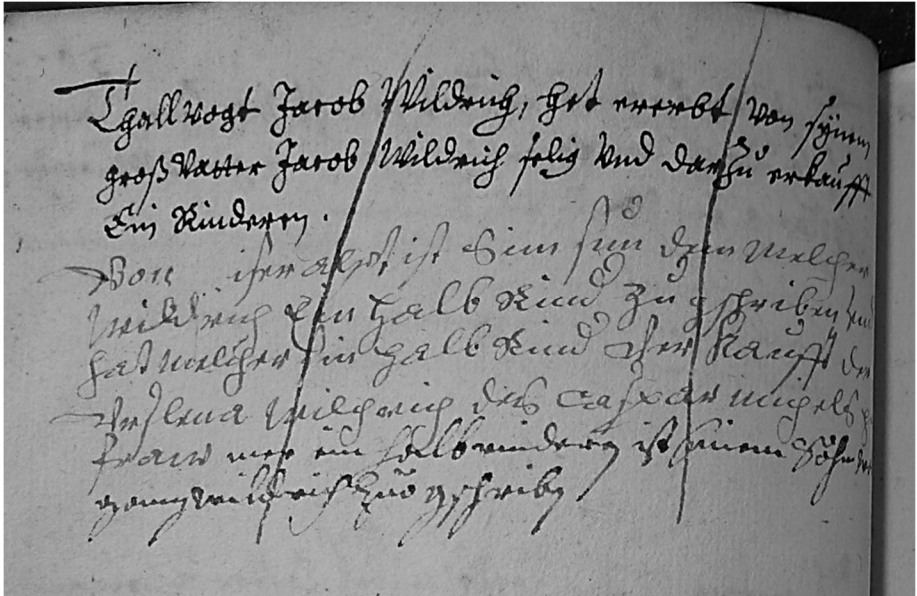 Thallvogt Jacob Wildrich, het ererbt von synem
großvatter Jacob Wildrich selig und darzu erkaufft
Ein Rinderen.
Von ist Sim sun dem Melcher
Wildrich Ein halb Rind Zu gschriben
hat Melcher Ein halb Rind Er Kaufft
Wildrich des Caspar michels
fraw mer ein halb rinderen ist seinem Sohn
wildrich zuo gschriben